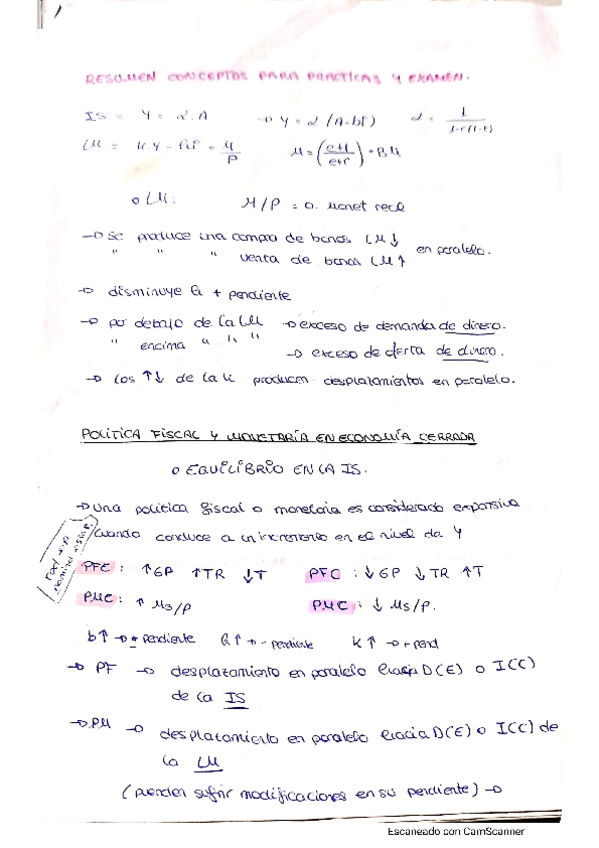 1
RESUMEN CONCEPTOS PARA PRACTICAS Y EXAMEN.
IS = Y = α.A → Y = α (A-bi) α = 1/1-c(1-t)
LM = K.Y - hi = M/P M = (e+1/e+r) · BM
o LM: M/P = o. monet real
→ Se produce una compra de bonos LM↓ en paralelo.
" " " venta de bonos LM↑
→ disminuye la + pendiente
→ por debajo de la LM → exceso de demanda de dinero.
" encima " " " → exceso de oferta de dinero.
→ Los ↑↓ de la k producen desplazamientos en paralelo.
POLÍTICA FISCAL Y MONETARÍA EN ECONOMÍA CERRADA
o EQUILIBRIO EN LA IS.
→ una politica fiscal o monetaria es considerado expansiva
cuando conduce a un incremento en el nivel da Y
PFE: ↑GP ↑TR ↓T PFC: ↓GP ↓TR ↑T
PME: ↑ Ms/p PMC: ↓ Ms/P.
b↑ → + pendiente h↑ → - pendiente K↑ → + pend
→ PF → desplazamiento en paralelo hacia D(E) o I(C)
de la IS
→ PM → desplazamiento en paralelo hacia D(E) o I(C) de
la LM
(pueden sufrir modificaciones en su pendiente) →
Escaneado con CamScanner